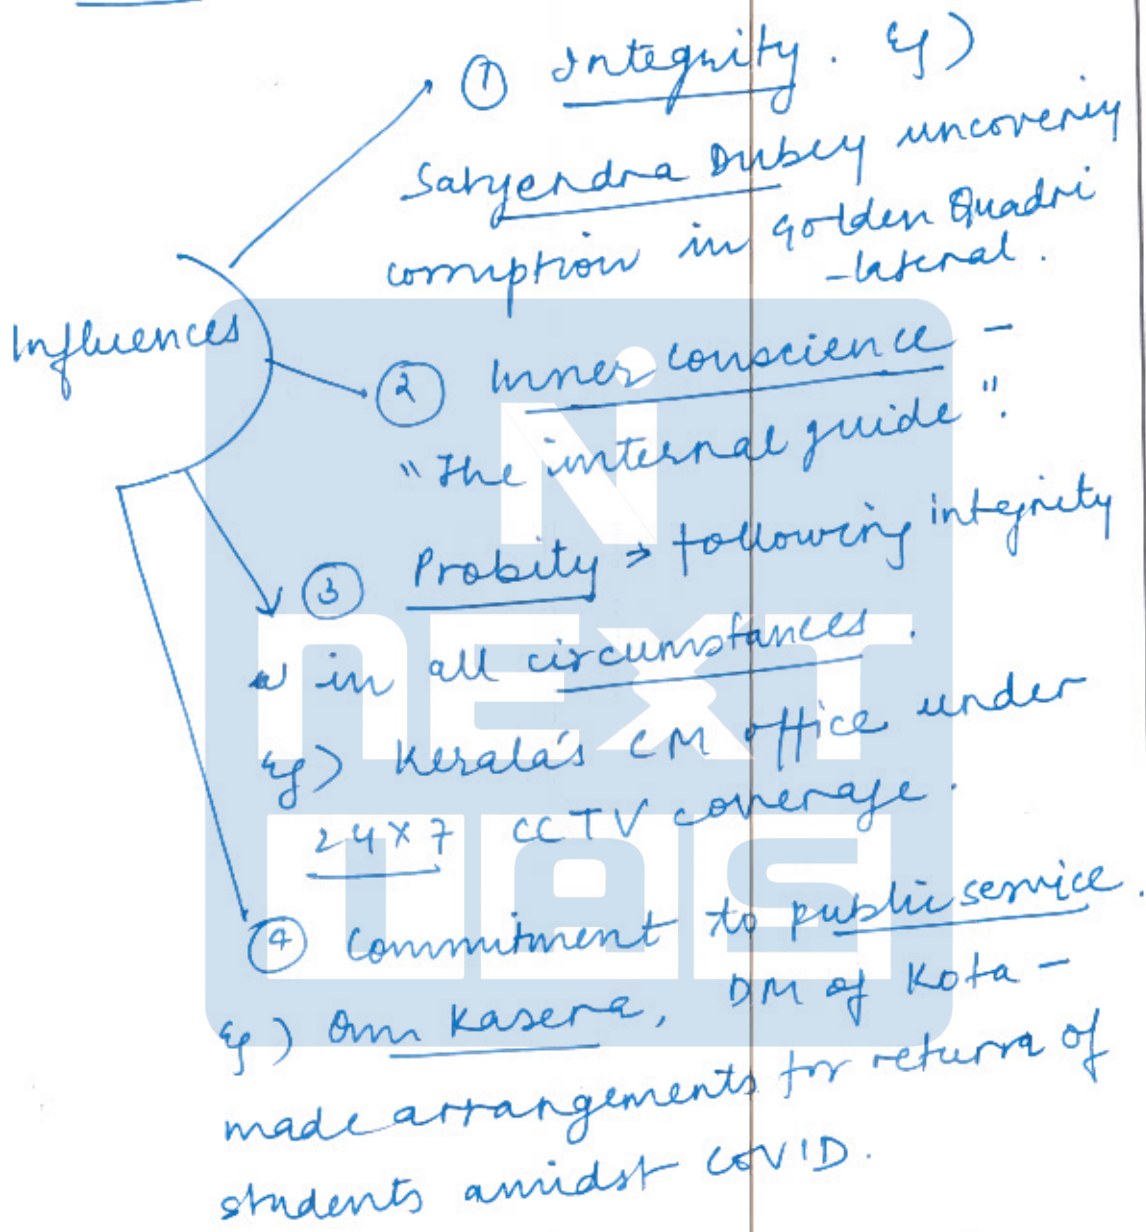 ① Integrity. Eg)
Satyendra Dubey uncovering
corruption in Golden Quadri
-lateral.
Influences
② Inner conscience -
"The internal guide".
③ Probity → following integrity
in all circumstances.
Eg) Kerala's CM office under
24x7 CCTV coverage.
④ Commitment to public service.
Eg) Om Kasera, DM of Kota -
made arrangements for return of
students amidst COVID.
NEXT
IAS